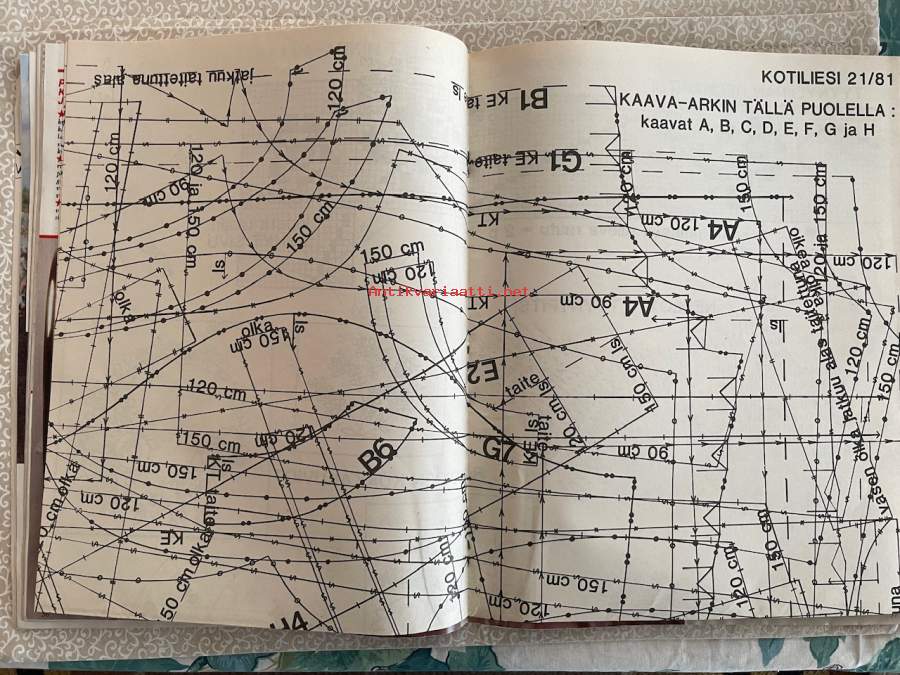 KOTILIESI 21/81
KAAVA-ARKIN TÄLLÄ PUOLELLA :
kaavat A, B, C, D, E, F, G ja H
jatkuu taitettuna alas
120 cm
ls
B1 KE
G1 KE taite
120 cm
90 cm
120 ja 150 cm
150 cm
ls
KT
120 cm
A4
120 cm
150 cm
120 ja 150 cm
120 cm
150 cm
120 cm
Antikvariaatti.net
KT
90 cm
A4
olka
olka
150 cm
ls
ls
E2
120 cm
taite
120 cm ls
150 cm ls
120 cm
150 cm
150 cm
120 cm
B6
G7
KE taite
ls
90 cm
vasen olka jatkuu alas taitettuna
150 cm
KT taite
ls
120 cm
KE
olka
150 cm olka
120 cm
150 cm
120 cm
120 cm
150 cm